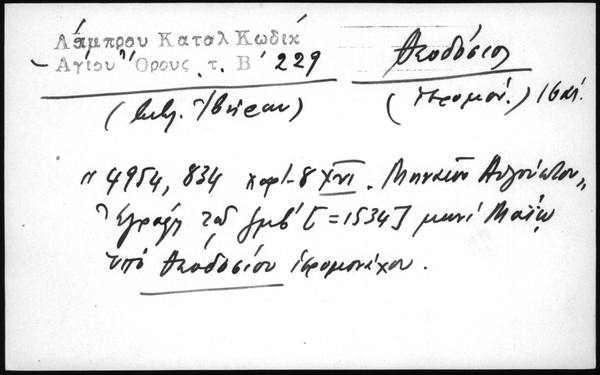 Λάμπρου Κατσλ Κωδικ
Αγίου Όρους τ. Β΄ 229
Θεοδόσιος
(Ιβήρων)
(ἱερομόν.)
"4954, 834 χαρτ. 8 XVI. Μηναῖον Αὐγούστου"
Ἐγράφη τῷ ζμβ΄ [=1534] μηνὶ Μαΐῳ
ὑπὸ Θεοδοσίου ἱερομονάχου.